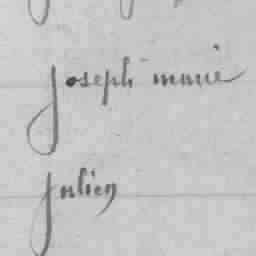 joseph marie
julien